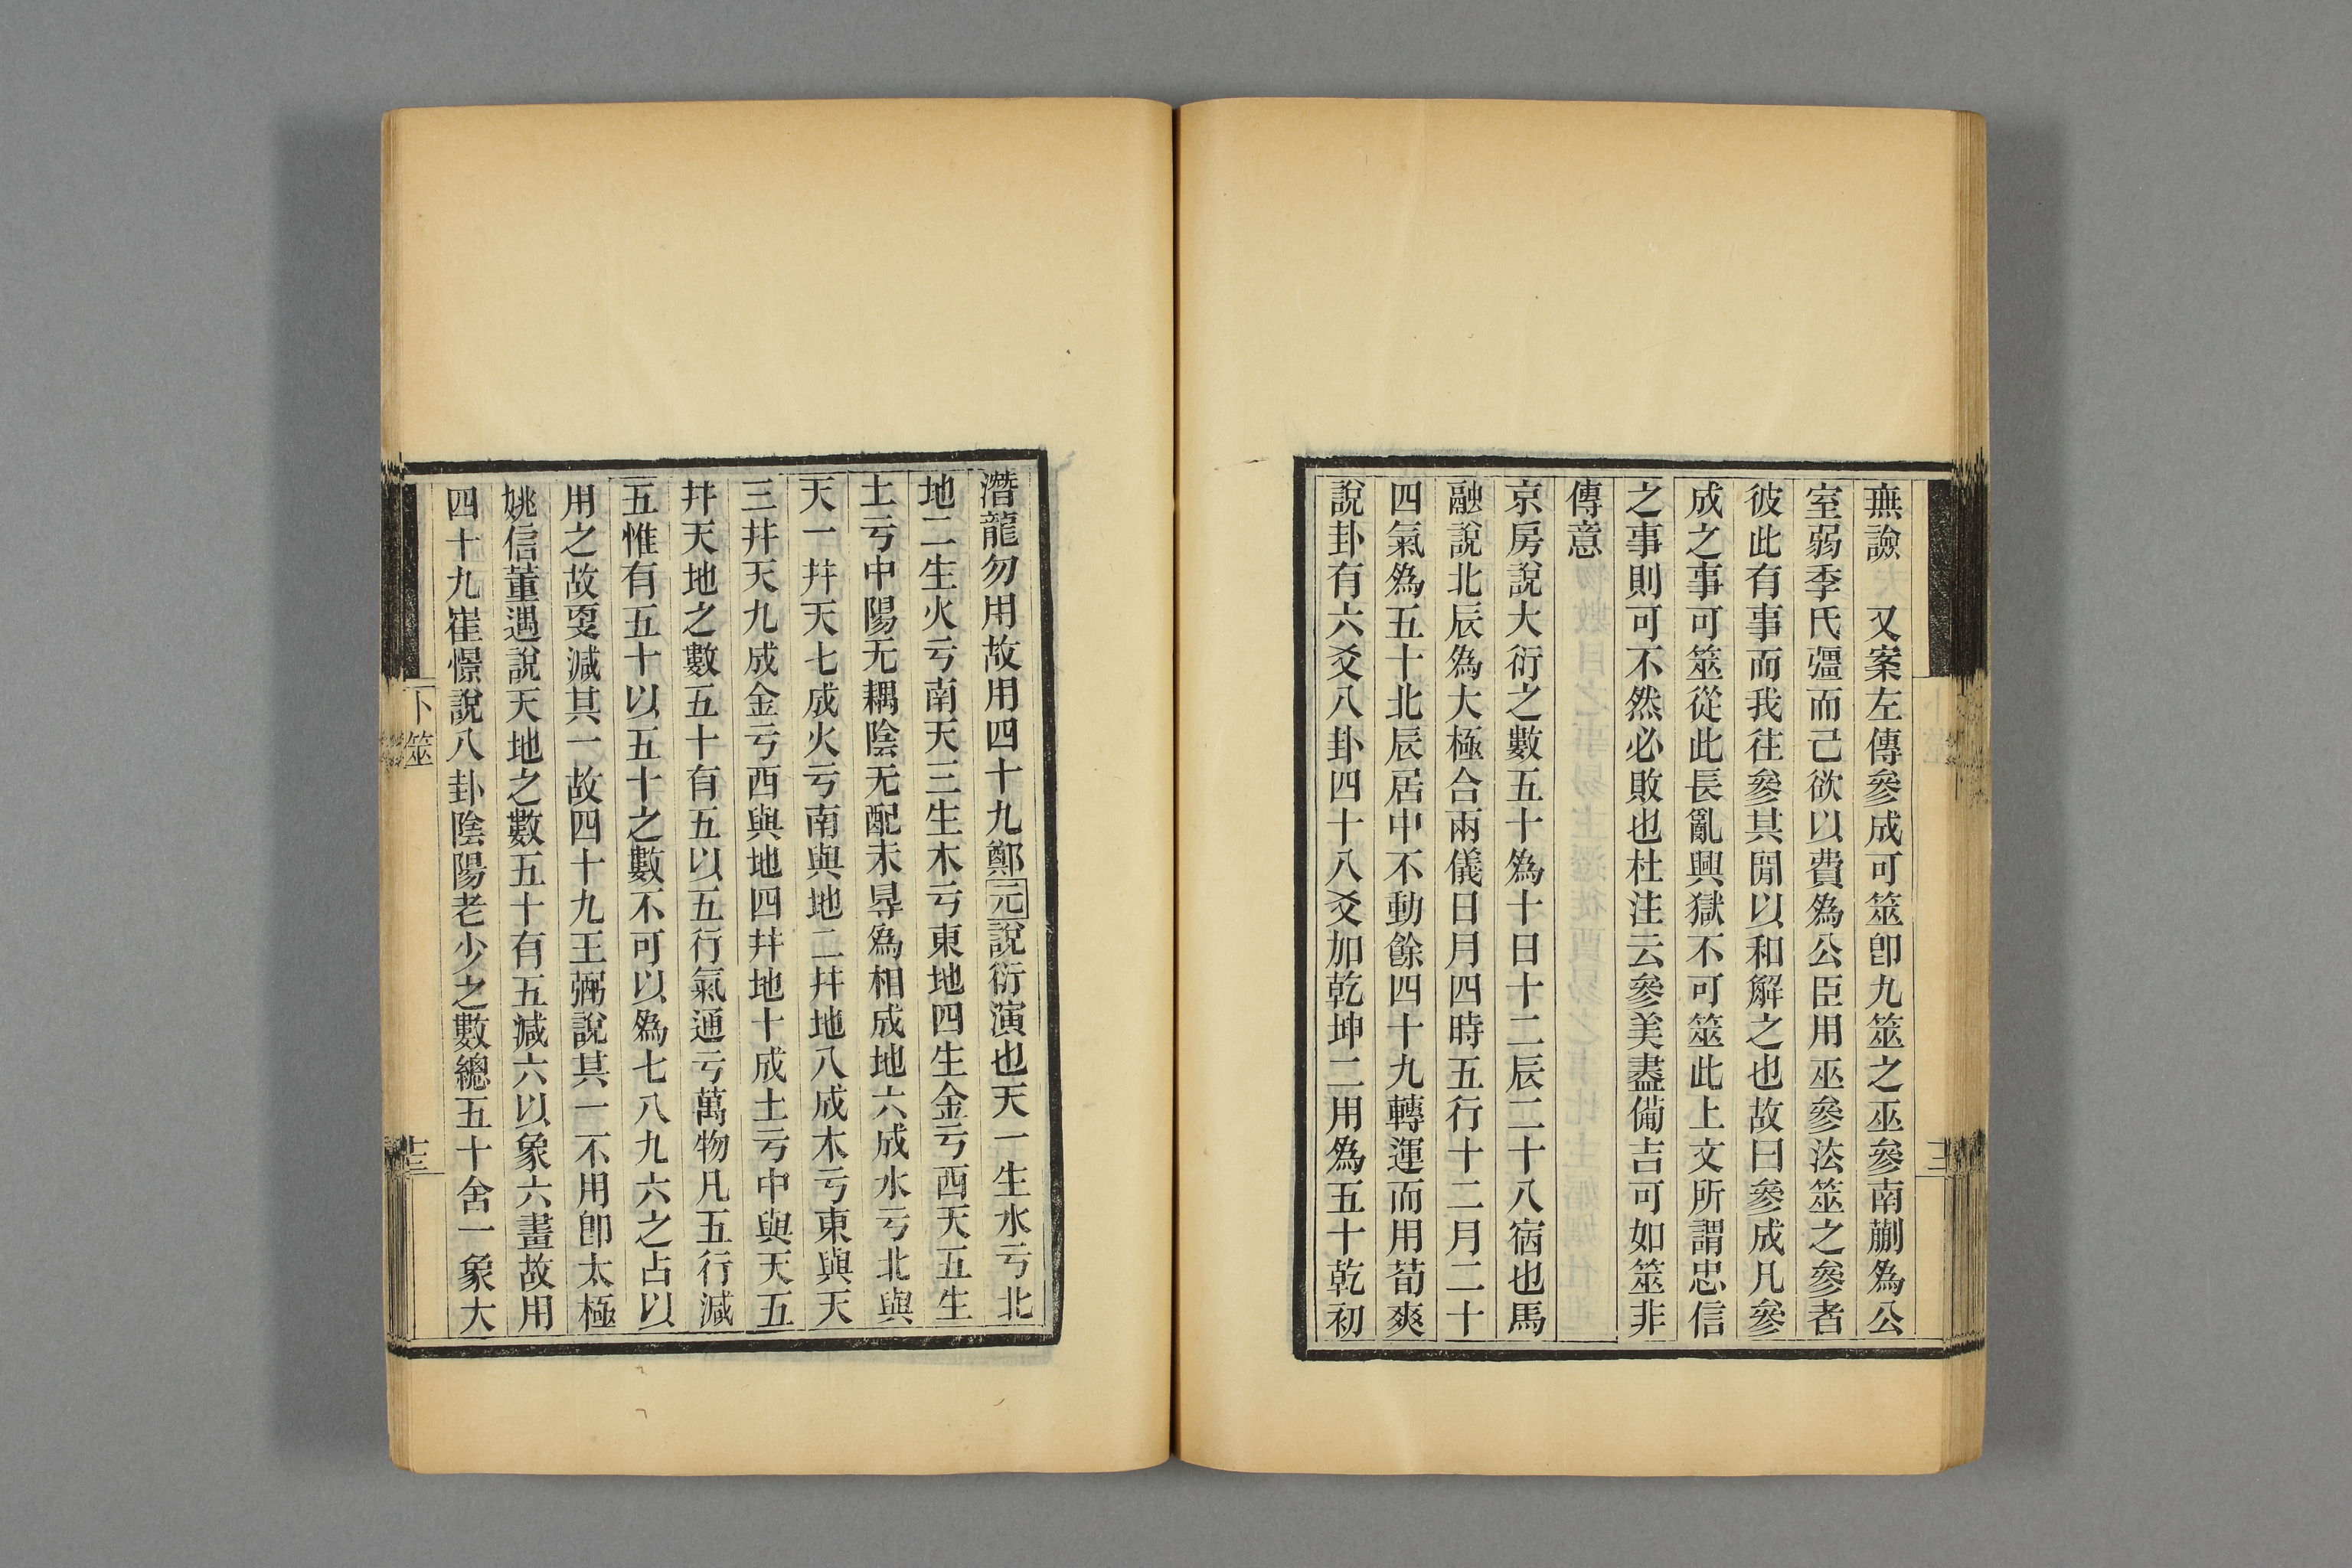 無譣　又案左傳參成可筮卽九筮之巫參南蒯爲公
室弱季氏彊而己欲以費爲公臣用巫參法筮之參者
彼此有事而我往參其閒以和解之也故曰參成凡參
成之事可筮從此長亂興獄不可筮此上文所謂忠信
之事則可不然必敗也杜注云參美盡僃吉可如筮非
傳意
京房說大衍之數五十爲十日十二辰二十八宿也馬
融說北辰爲大極合兩儀日月四時五行十二月二十
四氣爲五十北辰居中不動餘四十九轉運而用荀爽
說卦有六爻八卦四十八爻加乾坤二用爲五十乾初
潛龍勿用故用四十九鄭元說衍演也天一生水亏北
地二生火亏南天三生木亏東地四生金亏西天五生
土亏中陽无耦陰无配未㝵爲相成地六成水亏北與
天一幷天七成火亏南與地二幷地八成木亏東與天
三幷天九成金亏西與地四幷地十成土亏中與天五
幷天地之數五十有五以五行氣通亏萬物凡五行減
五惟有五十以五十之數不可以爲七八九六之占以
用之故㪅減其一故四十九王弼說其一不用卽太極
姚信董遇說天地之數五十有五減六以象六畫故用
四十九崔憬說八卦陰陽老少之數總五十舍一象大
卜筮